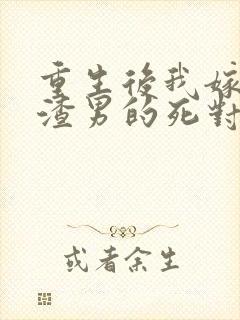 重生後我嫁
渣男的死對
或者余生